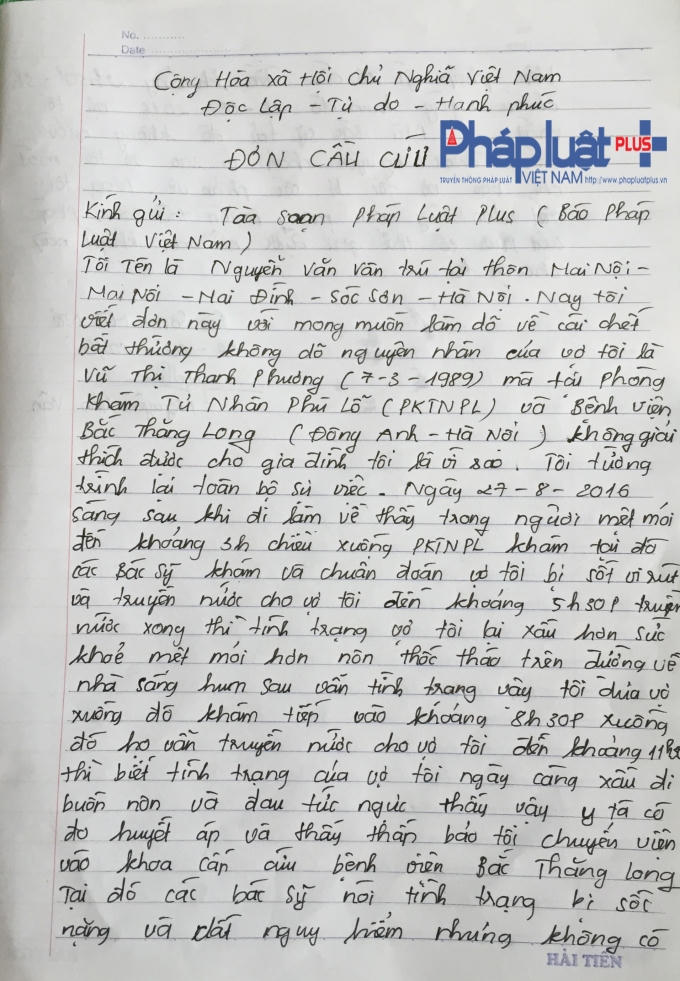 No. ...........
Date ...................
Cộng Hòa xã Hội chủ Nghĩa Việt Nam
Độc Lập - Tự do - Hạnh phúc
ĐƠN CẦU CỨU
Pháp luật PLUS
TRUYỀN THÔNG PHÁP LUẬT VIỆT NAM http://www.phapluatplus.vn
Kính gửi : Tòa soạn Pháp Luật Plus ( Báo Pháp
Luật Việt Nam )
Tôi Tên là Nguyễn Văn Vân trú tại thôn Mai Nội -
Mai Nôi - Mai Đính - Sóc Sơn - Hà Nội . Nay tôi
viết đơn này với mong muốn làm dõ về cái chết
bất thường không dõ nguyên nhân của vợ tôi là
Vũ Thị Thanh Phương ( 7-3-1989) mà tại Phòng
Khám Tư Nhân Phù Lỗ (PKTNPL) và Bệnh Viện
Bắc Thăng Long ( Đông Anh - Hà Nội ) không giải
thích được cho gia đình tôi là vì sao . Tôi tường
trình lại toàn bộ sự việc . Ngày 27 - 8 - 2016
sáng sau khi đi làm về thấy trong người mệt mỏi
đến khoảng 3h chiều xuống PKTNPL khám tại đó
các Bác Sỹ khám và chuẩn đoán vợ tôi bị sốt vi rút
và truyền nước cho vợ tôi đến khoảng 5h30P truyền
nước xong thì tình trạng vợ tôi lại xấu hơn sức
khoẻ mệt mỏi hơn nôn thốc tháo trên đường về
nhà sáng hum sau vẫn tình trạng vậy tôi đưa vợ
xuống đó khám tiếp vào khoảng 8h30P xuống
đó họ vẫn truyền nước cho vợ tôi đến khoảng
thì biết tình trạng của vợ tôi ngày càng xấu đi
buồn nôn và đau tức ngực thấy vậy y tá có
đo huyết áp và thấy thấp bảo tôi chuyển viện
vào khoa cấp cứu bệnh viện Bắc Thăng Long
Tại đó các bác sỹ nói tình trạng bị sốc
nặng và dất nguy hiểm nhưng không có
HẢI TIẾN